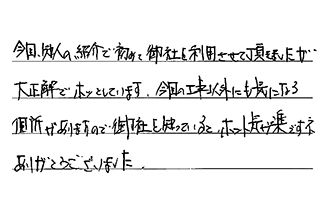 今回、知人の紹介で初めて御社を利用させて頂きましたが
大正解でホッとしています。今回の工事以外にも気になる
個所がありますので御社を知っていると、ホント気が楽ですネ
ありがとうございました。